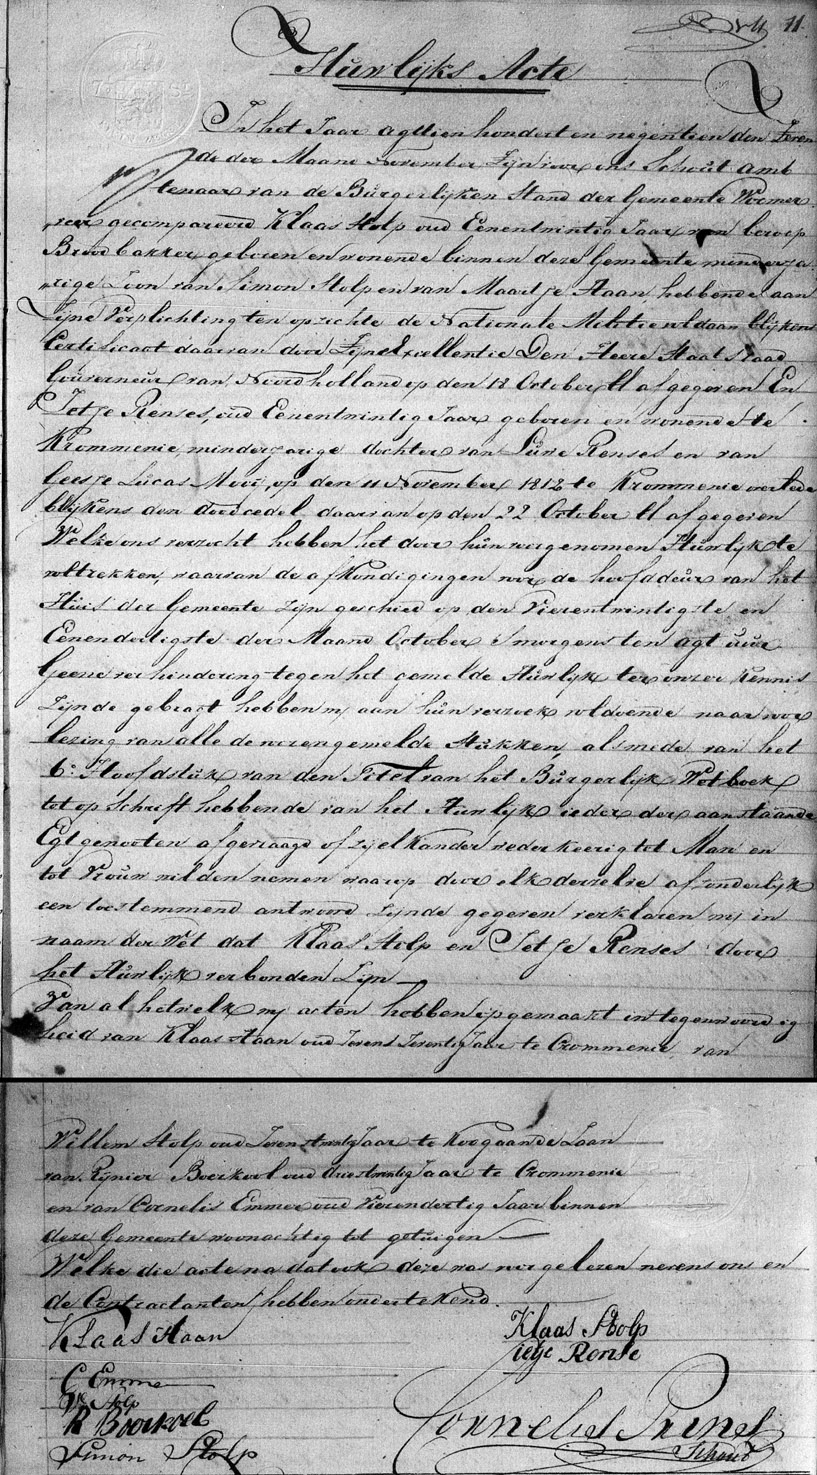 11
Huwlijks Acte
In het Jaar agttien hondert en negentien den Zeven
de der Maand November Zijn voor ons Schout amb
tenaar van de Burgerlijken Stand der Gemeente Wormer
veer gecompareerd Klaas Stolp oud Eenentwintig Jaar van beroep
Broodbakker geboren en wonende binnen deze Gemeente minderja
rige Zoon van Simon Stolp en van Maartje Haan hebbende aan
Zijne Verplichting ten opzichte de Nationale Militie voldaan blijkens
Certificaat daarvan door Zijne Excellentie Den Heere Staatsraad
Gouverneur van Noordholland op den 18 October ll afgegeven En
Jetje Renses, oud Eenentwintig Jaar geboren en wonende te
Krommenie, minderjarige dochter van Luwe Renses en van
Geesje Lucas Mooi, op den 11 November 1812 te Krommenie overlede
blijkens den doodcedel daarvan op den 22 October ll afgegeven
Welke ons verzocht hebben het door hun voorgenomen Huwlijk te
voltrekken, waarvan de afkondigingen voor de hoofddeur van het
Huis der Gemeente zijn geschied op den Vierentwintigste en
Eenendertigste der Maand October Smorgens ten agt uur
Geene verhindering tegen het gemelde Huwlijk ter onzer kennis
Zijnde gebragt hebben wij aan hun verzoek voldoende naar voor
lezing van alle de vorengemelde Stukken, alsmede van het
6e Hoofdstuk van den Titel van het Burgerlijk Wetboek
tot op Schrift hebbende van het Huwlijk ieder der aanstaande
Egtgenooten afgevraagd of zij elkander wederkeerig tot Man en
tot Vrouw wilden nemen waarop door elk derzelve afzonderlijk
een toestemmend antwoord Zijnde gegeven verklaren wij in
naam der Wet dat Klaas Stolp en Jetje Renses door
het Huwlijk verbonden Zijn
Van al hetwelk wij acten hebben opgemaakt in tegenwoordig
heid van Klaas Haan oud Zevens Zeventig Jaar te Crommenie, van
Willem Stolp oud Zevenstwintig Jaar te Koog aande Zaan
van Rijnier Boerkoel oud driestwintig Jaar te Crommenie
en van Cornelis Emmer oud Vierendertig Jaar binnen
deze Gemeente woonachtig tot getuigen
Welke die acte na dat ook deze was voorgelezen nevens ons en
de Contractanten hebben ondertekend.
Klaas Haan
Klaas Stolp
ietje Rense
C Emme
W Stolp
R Boerkoel
Cornelis Prins
Schout
Simon Stolp